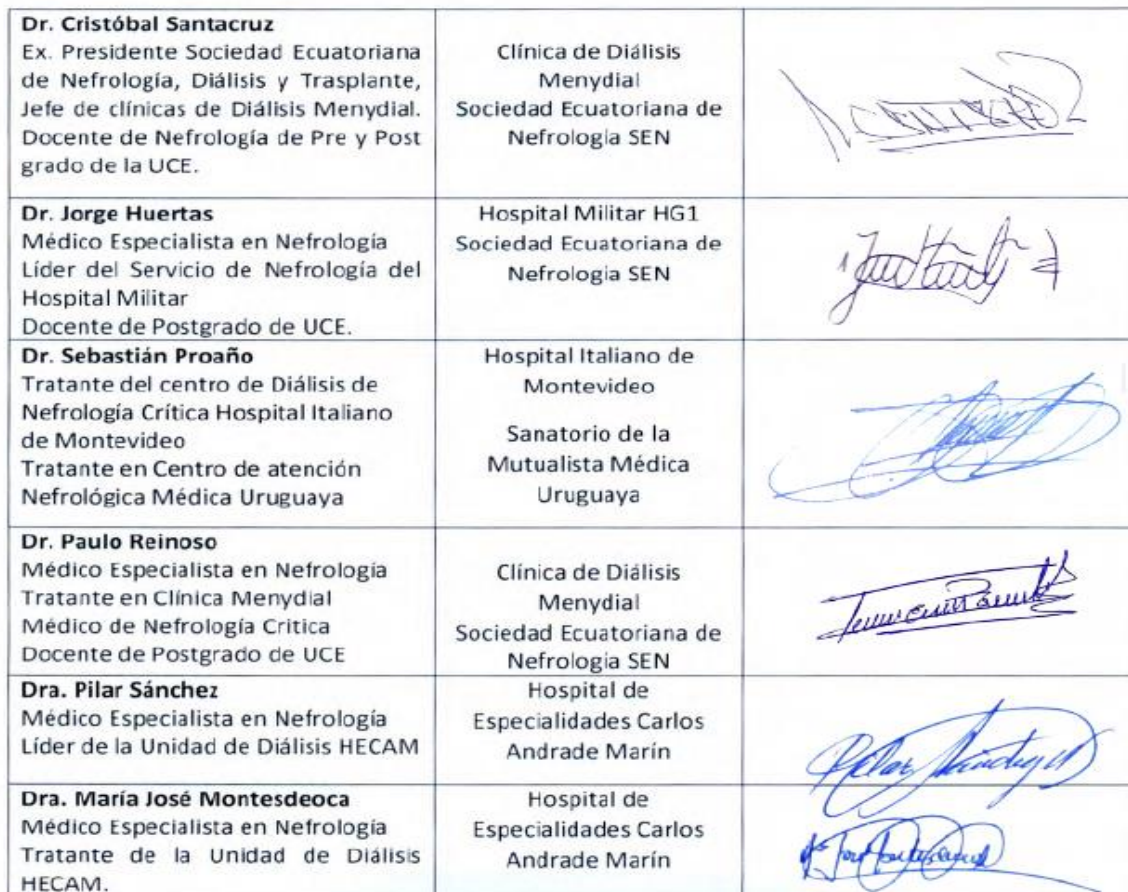 Dr. Cristóbal Santacruz
Ex. Presidente Sociedad Ecuatoriana
de Nefrología, Diálisis y Trasplante,
Jefe de clínicas de Diálisis Menydial.
Docente de Nefrología de Pre y Post
grado de la UCE.
Clínica de Diálisis
Menydial
Sociedad Ecuatoriana de
Nefrologia SEN
Dr. Jorge Huertas
Médico Especialista en Nefrología
Líder del Servicio de Nefrología del
Hospital Militar
Docente de Postgrado de UCE.
Hospital Militar HG1
Sociedad Ecuatoriana de
Nefrologia SEN
Dr. Sebastián Proaño
Tratante del centro de Diálisis de
Nefrología Crítica Hospital Italiano
de Montevideo
Tratante en Centro de atención
Nefrológica Médica Uruguaya
Hospital Italiano de
Montevideo
Sanatorio de la
Mutualista Médica
Uruguaya
Dr. Paulo Reinoso
Médico Especialista en Nefrología
Tratante en Clínica Menydial
Médico de Nefrología Critica
Docente de Postgrado de UCE
Clínica de Diálisis
Menydial
Sociedad Ecuatoriana de
Nefrologia SEN
Dra. Pilar Sánchez
Médico Especialista en Nefrología
Líder de la Unidad de Diálisis HECAM
Hospital de
Especialidades Carlos
Andrade Marín
Pilar Sánchez
Dra. María José Montesdeoca
Médico Especialista en Nefrología
Tratante de la Unidad de Diálisis
HECAM.
Hospital de
Especialidades Carlos
Andrade Marín